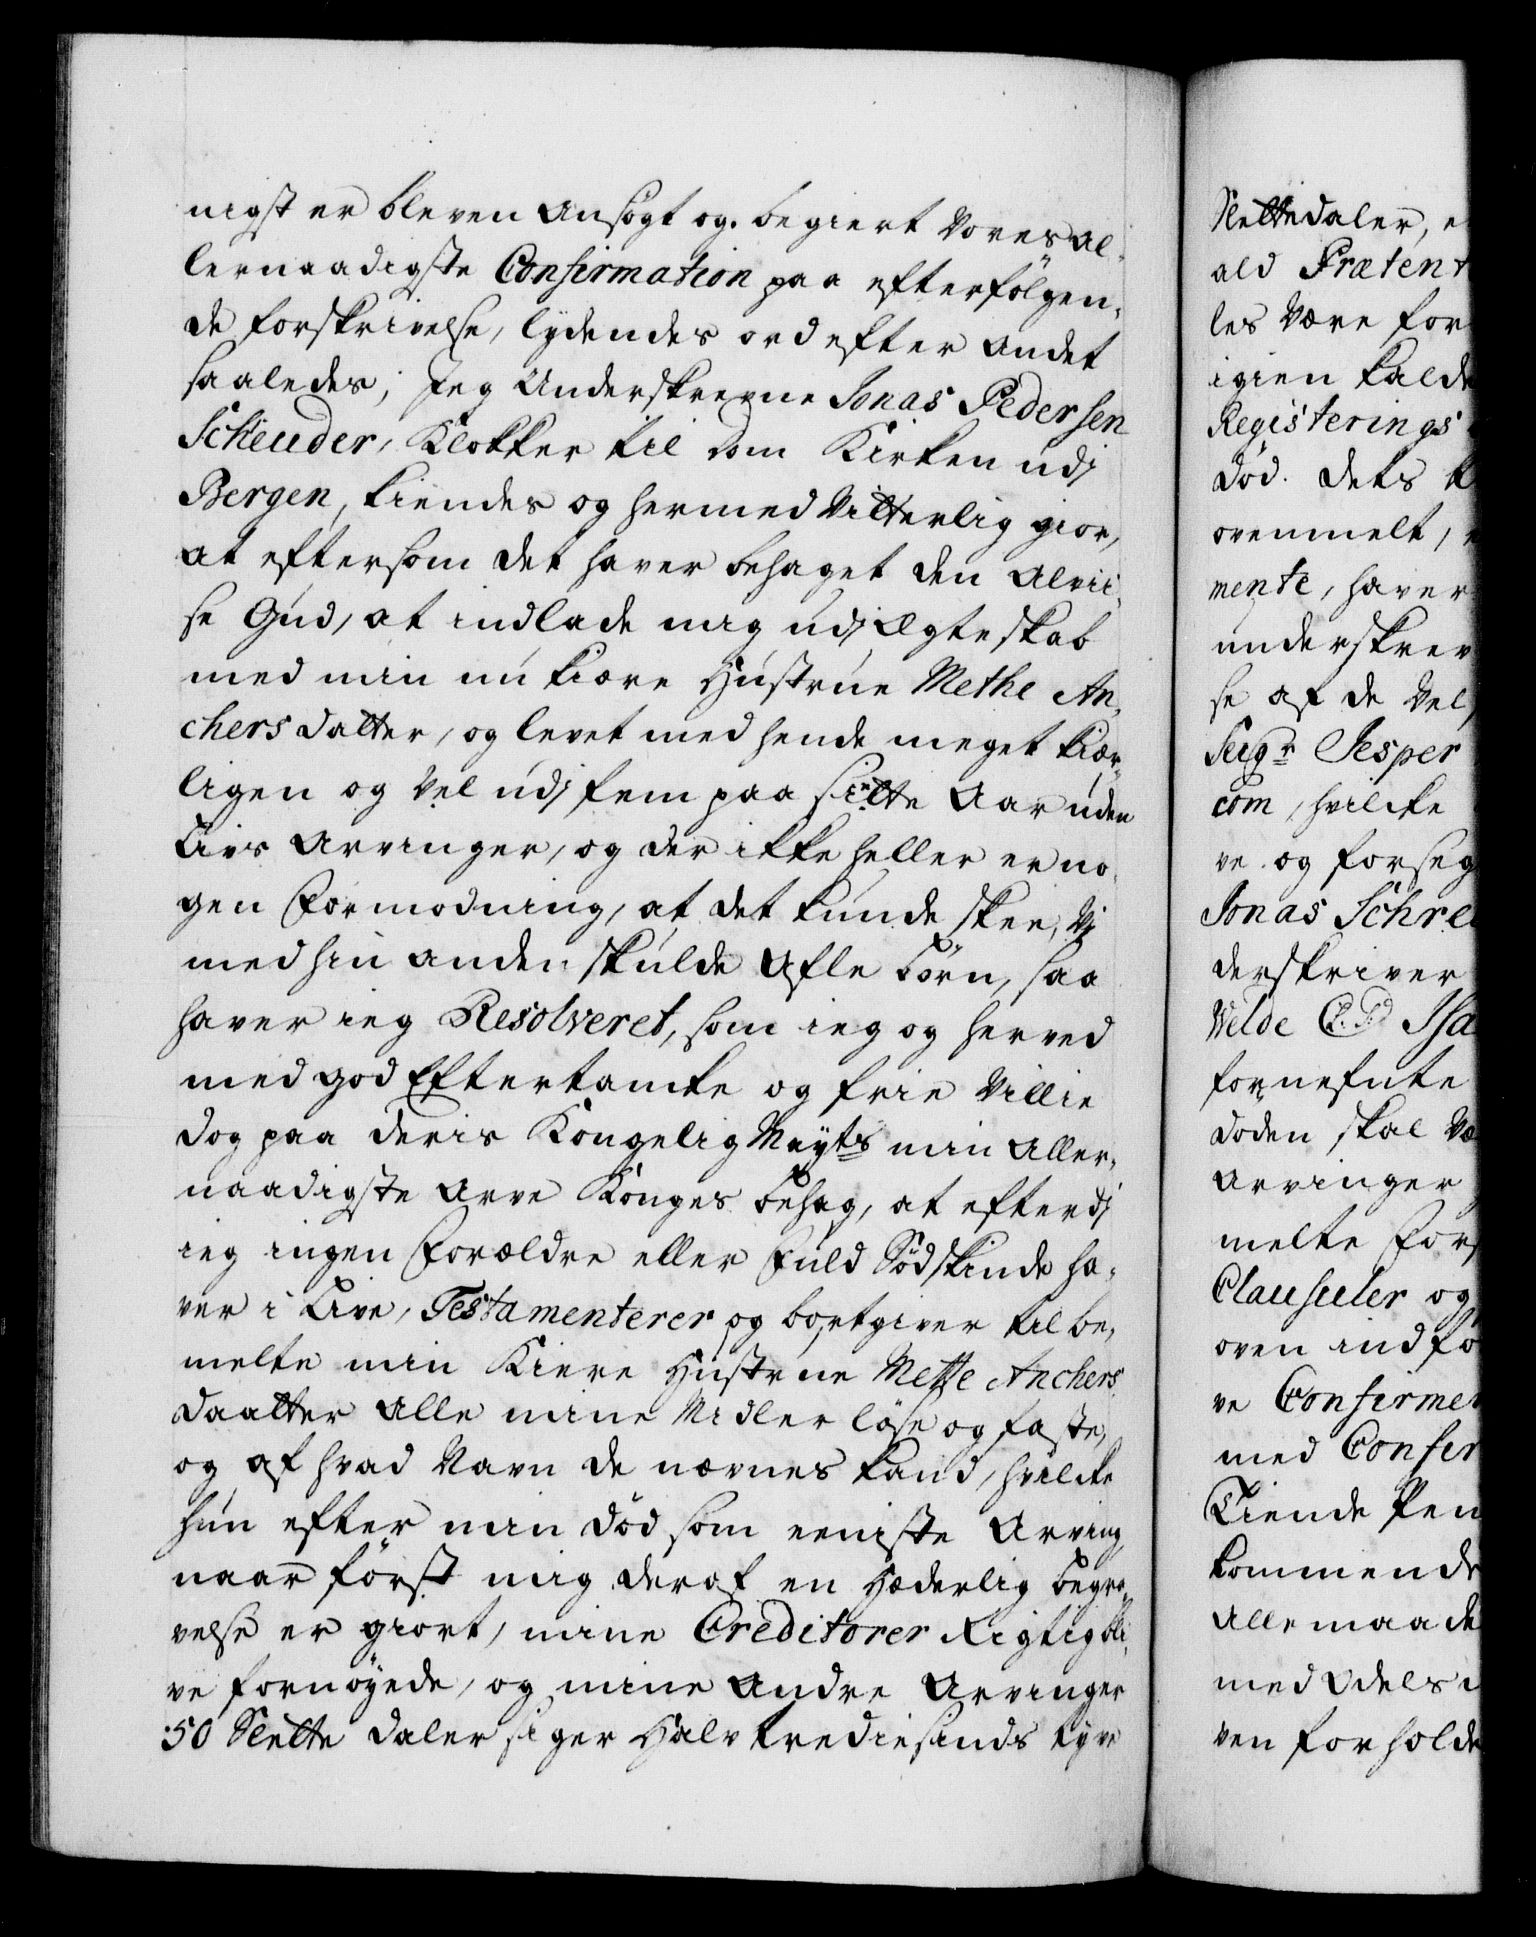 nigst er bleven ansögt og begiert Vores al-
lernaadigste Confirmation paa efterfölgen-
de forskrivelse, lydendes ord efter andet
saaledes; Jeg Underskrevne Jonas Pedersen
Scheuder, Klokker til Dom Kirken udj
Bergen, kiendes og hermed Vitterlig giör,
at eftersom det haver behaget den Alvii-
se Gud, at indlade mig udj Ægteskab
med min nu kiære Hustrue Methe An-
chersdatter, og levet med hende meget kiær-
ligen og Vel udj fem paa Sitte Aar uden
Livs Arvinger, og der ikke heller er no-
gen Formodning, at det kunde skee, Vj
med hin anden skulde Afle börn, saa
haver ieg Resolveret, som ieg og herved
med god Eftertancke og frie Villie
dog paa Deris Kongelig Mayts min Aller-
naadigste Arve Konges behag, at efterdj
ieg ingen Forældre eller Fuld Södskinde ha-
ver i Live, Testamenterer og bortgiver til be-
melte min Kiere Hustrue Mette Anchers
Daatter Alle mine Midler löse og faste,
og af hvad Navn de nævnes kand, hvilcke
hun efter min död som eeniste Arving
naar först mig deraf en Hæderlig begra-
velse er giort, mine Creditorer Rigtig bli-
ve fornöyede, og mine Andre Arvinger
50 Slette daler siger Halvtrediesinds tyve
Slettedaler, e
ald Prætent
les Være for
igien kald
Registerings
död. dets
ovenmelt,
mente, haver
underskrev
se af de Vel
Seigr Jesper
com, hvilcke
ve og forseg
Jonas Schre
derskriver
Velde (L. S.) Isa
fornefnte
döden skal Væ
Arvinger
melte For
Clausuler og
oven indfö
ve Confirmer
med Confir
Tiende Pen
kommende
Alle maade
med Odels
ven forholde